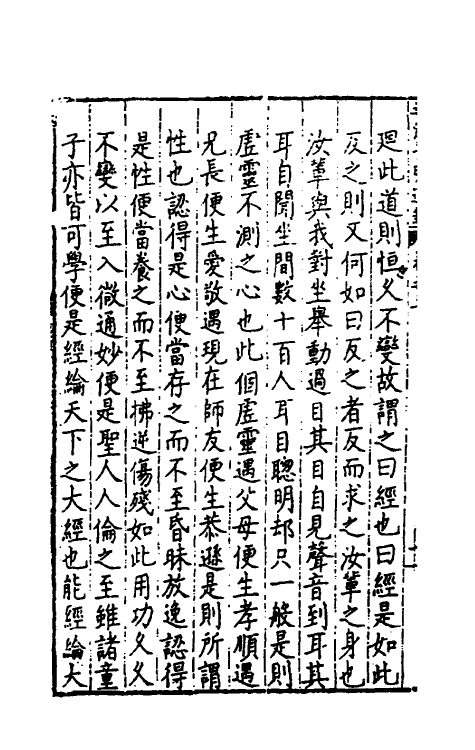 是此道則恒久不變故謂之曰經也曰經是如此
反之則又何如曰反之者反而求之汝軰之身也
汝軰與我對坐舉動過目其目自見聲音到耳其
耳自聞坐間數十百人耳目聰明却只一般是則
虛靈不測之心也此個虛靈遇父母便生孝順遇
兄長便生愛敬遇現在師友便生恭遜是則所謂
性也認得是心便當存之而不至昏昧放逸認得
是性便當養之而不至拂逆傷殘如此用功久久
不變以至入微通妙便是聖人人倫之至雖諸童
子亦皆可學便是經綸天下之大經也能經綸大